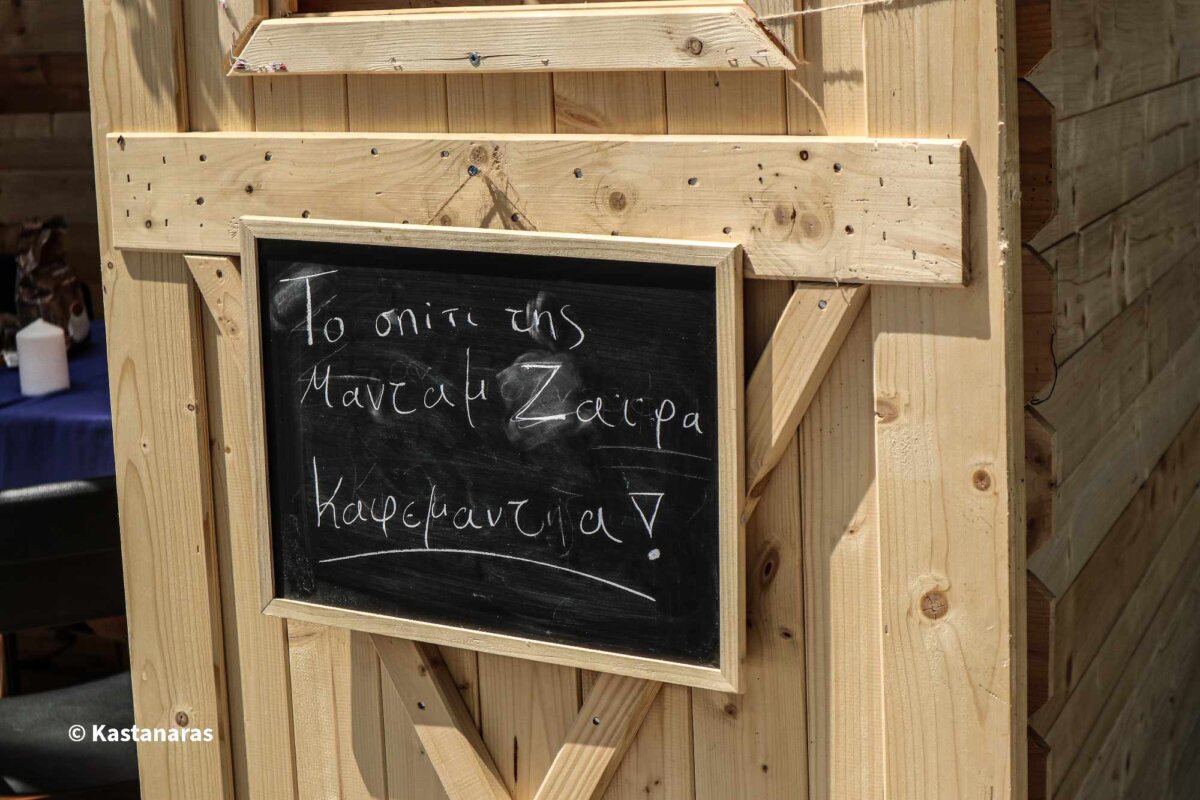 Το σπίτι της
Μανταμ Ζαΐρα
καφεμαντεία!
© Kastanaras